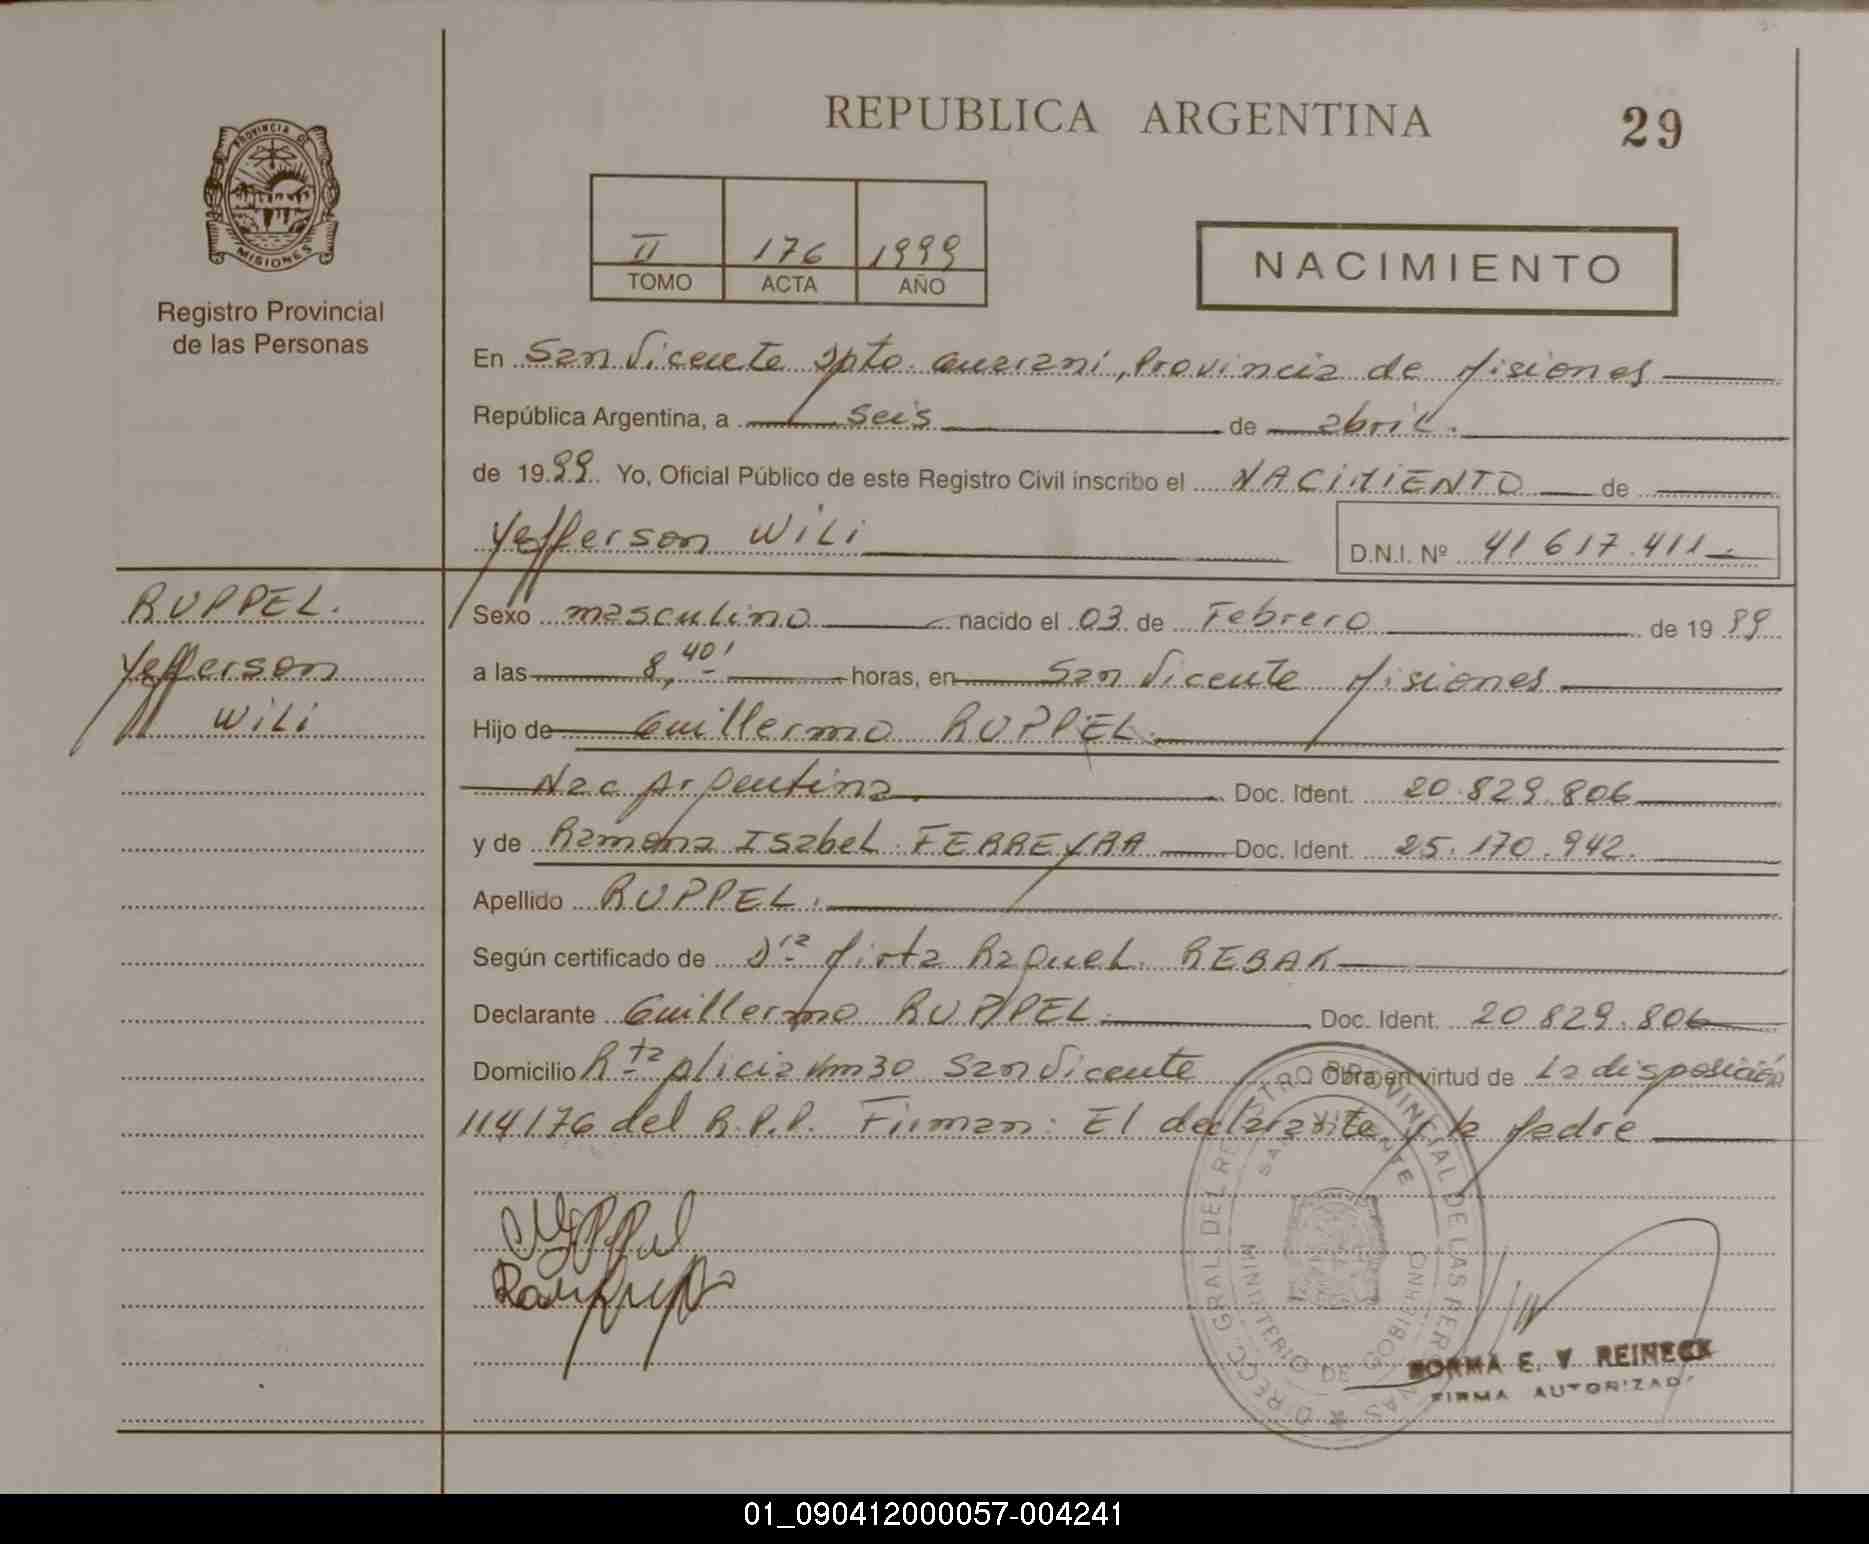 REPUBLICA ARGENTINA
29
PROVINCIA DE
MISIONES
Registro Provincial
de las Personas
II 176 1999
TOMO ACTA AÑO
NACIMIENTO
En San Vicente Dpto. Guarani, Provincia de Misiones
República Argentina, a seis de abril.
de 1999. Yo, Oficial Público de este Registro Civil inscribo el NACIMIENTO de
Yefferson Wili
D.N.I. Nº 41617.411
RUPPEL.
Yefferson
Wili
Sexo masculino nacido el 03 de Febrero de 1999
a las 8,40' horas, en San Vicente Misiones
Hijo de Guillermo RUPPEL.
Nac Argentina. Doc. Ident. 20.829.806
y de Ramona Isabel FERREYRA Doc. Ident. 25.170.942.
Apellido RUPPEL.
Según certificado de Dra Mirta Raquel REBAK
Declarante Guillermo RUPPEL. Doc. Ident. 20829.806
Domicilio Rta Alicia Km30 San Vicente Obra en virtud de la disposición
114/76 del R.P.P. Firman: El declarante y la Madre
DIRECC. GRAL. DEL REGISTRO PROVINCIAL DE LAS PERSONAS
SAN VICENTE
MINISTERIO DE GOBIERNO
NORMA E. V. REINECK
FIRMA AUTORIZADA
01_090412000057-004241